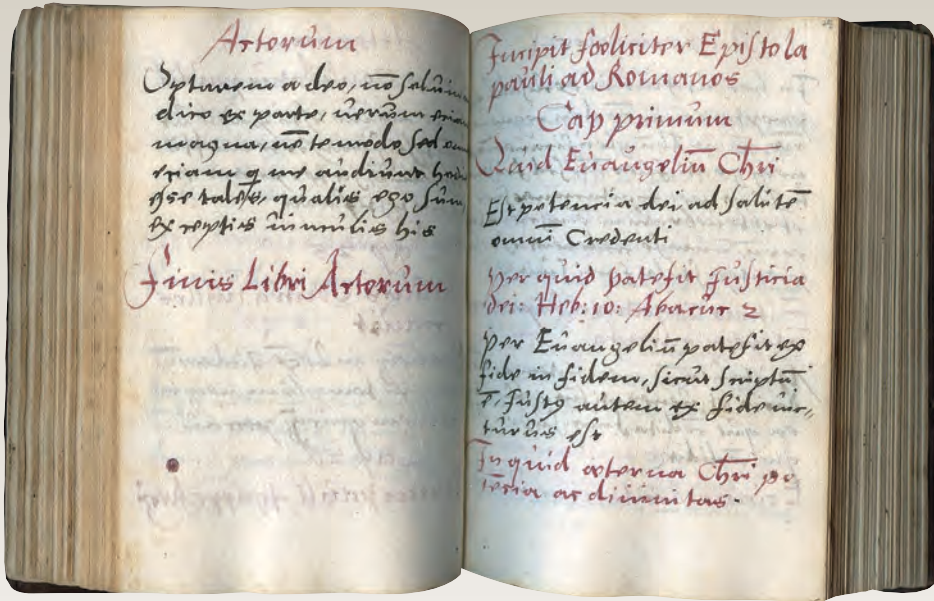 Actorum
Optarem a deo, nō solum
dico ex parte, uerum eciam
magna, nē te modo sed om
eciam q me audiunt hodi
esse tales, qualis ego sum,
exceptis uinculis his
Finis Libri Actorum
Incipit foeliciter Epistola
pauli ad Romanos
Cap primum
Quid Euangeliū Chri
Est potencia dei ad salutē
omnī Credenti
Per quid patefit Justicia
dei: Heb: 10: Abacuc 2
Per Euangeliū patefit ex
fide in fidem, sicut scriptū
ē, Justꝰ autem ex fide uic-
turus est
In quid aeterna Chri po
tēcia ac diuinitas.